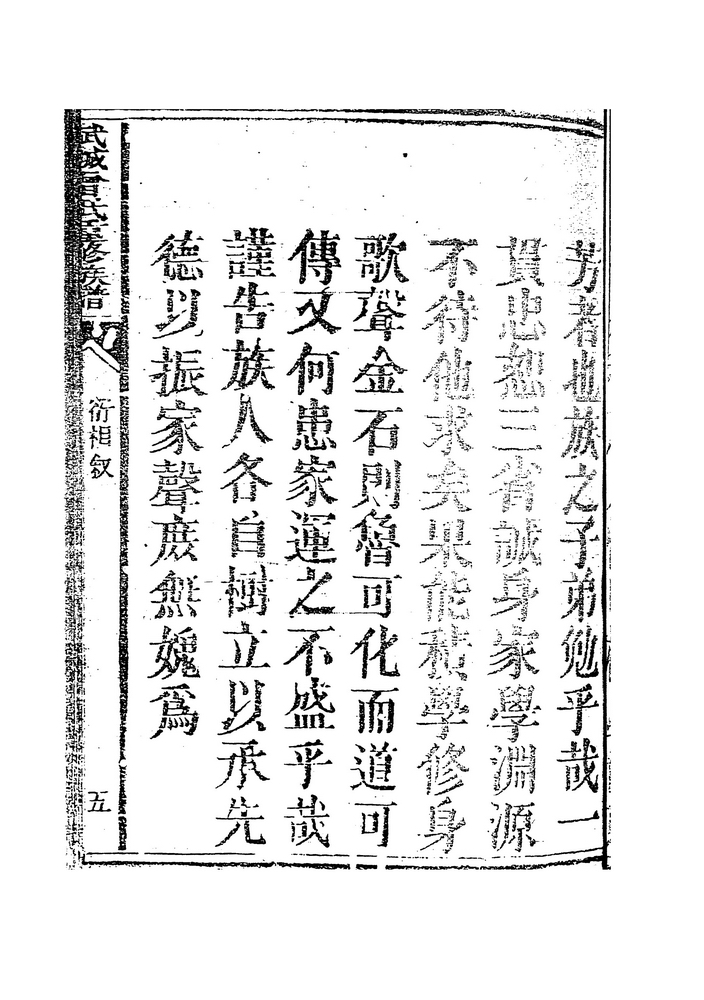 者也族之子弟勉乎哉一
貫忠恕三省誠身家學淵源
不待他求矣果能積學修身
歌聲金石則魯可化而道可
傳又何患家運之不盛乎哉
謹告族人各自樹立以承先
德以振家聲庶無媿爲
武城曾氏重修族譜
衍相叙
五